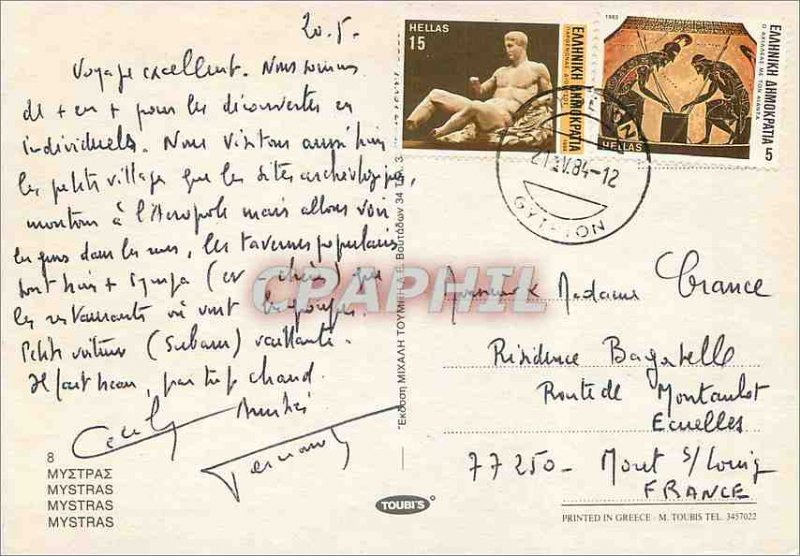 20.5.
Voyage excellent. Nous sommes
de + en + pour les découvertes en
individuels. Nous visitons aussi bien
les petits villages que les sites archéologiques,
montons à l'Acropole mais allons voir
les gens dans les rues, les tavernes populaires
sont bien + sympa (et chers) que
les restaurants où vont les groupes.
Petite voiture (Subaru) vaillante.
Il fait beau, pas trop chaud.
Amitiés
8
ΜΥΣΤΡΑΣ
MYSTRAS
MYSTRAS
MYSTRAS
Έκδοση ΜΙΧΑΛΗ ΤΟΥΜΠΗ Α.Ε. Βουτάδων 34 Τηλ. 3
TOUBI'S
HELLAS
15
ΕΛΛΗΝΙΚΗ ΔΗΜΟΚΡΑΤΙΑ
1983
ΕΛΛΗΝΙΚΗ ΔΗΜΟΚΡΑΤΙΑ
Ο ΑΧΙΛΛΕΑΣ ΜΕ ΤΟΝ ΑΙΑΝΤΑ
HELLAS
5
84-12
GYTHION
CPAPHIL
Monsieur Madame Crance
Résidence Bagatelle
Route de Montarlot
Ecuelles
77250 - Moret s/Loing
FRANCE
PRINTED IN GREECE - M. TOUBIS TEL. 3457022